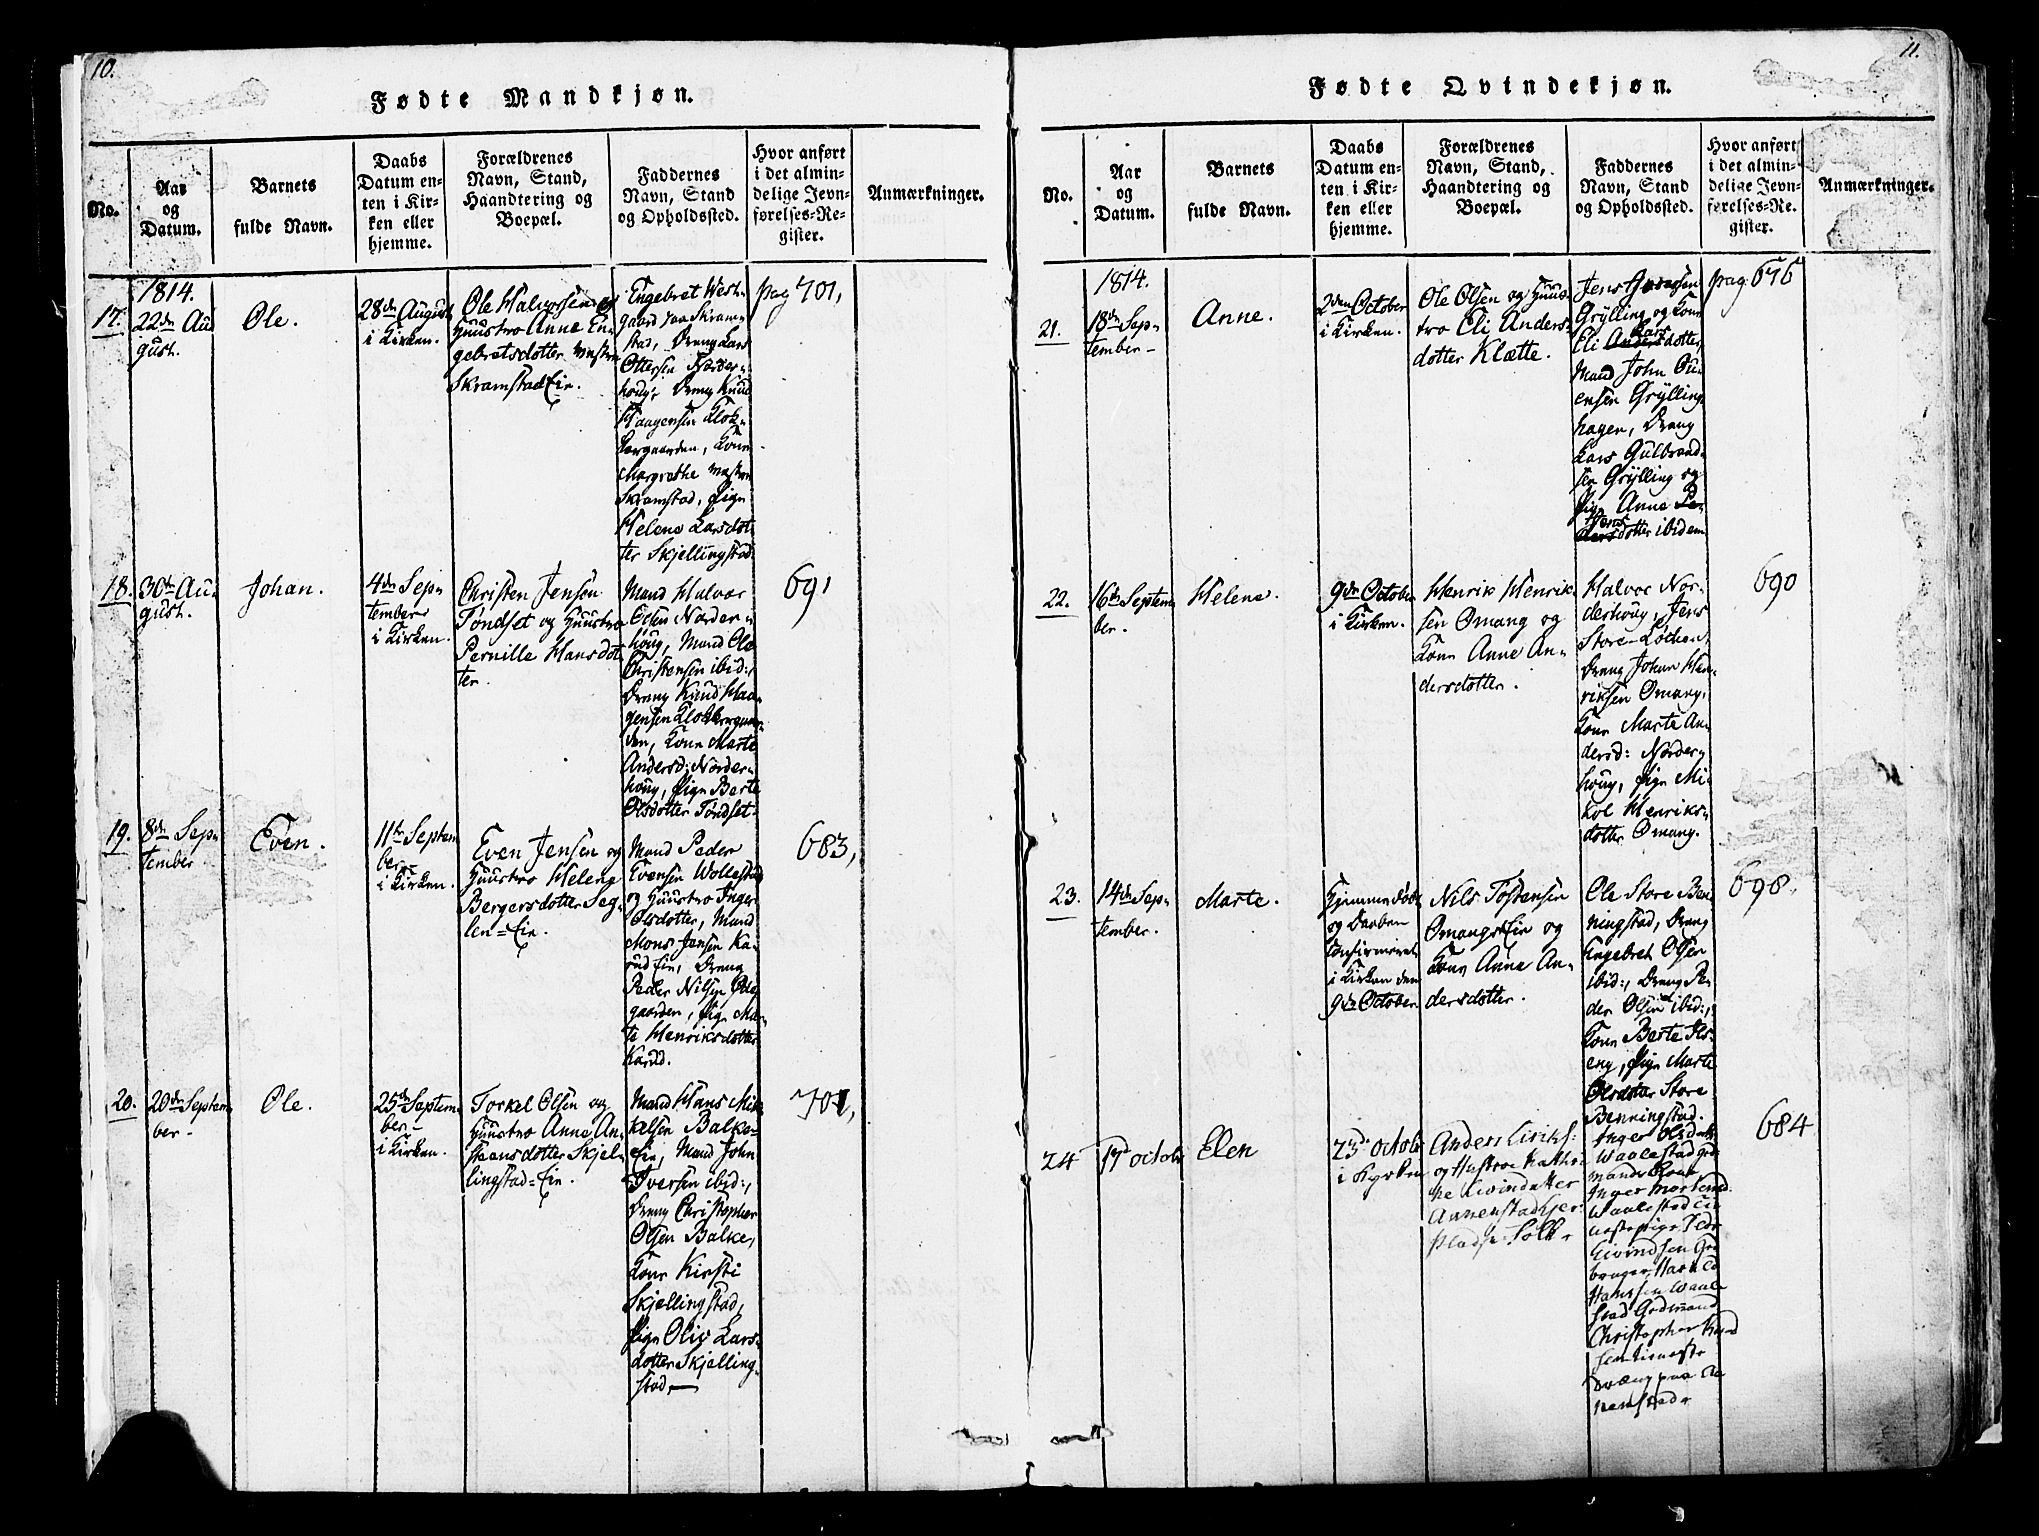 10.
Fødte Mandkjøn.
No.
Aar
og
Datum.
Barnets
fulde Navn.
Daabs
Datum en-
ten i Kir-
ken eller
hjemme.
Forældrenes
Navn, Stand,
Haandtering og
Boepæl.
Faddernes
Navn, Stand
og Opholdssted.
Hvor anført
i det almin-
delige Jevn-
førelses-Re-
gister.
Anmærkninger.
1814.
17.
22de Au
gust.
Ole.
28de August
i Kirken.
Ole Halvorsen og
Huustro Anne En-
gebretsdotter
Skramstad Eie.
Engebret West-
gaard paa Skram-
stad, Dreng Lars
Ottersen Norder-
houg, Dreng Knud
Haagensen Klok-
kergaarden, Kone
Margrethe
Skramstad, Pige
Helene Larsdot-
ter Skjellingstad.
pag 701,
18.
30te Au-
gust.
Johan.
4de Sep-
tember
i Kirken.
Christen Jensen
Tøndset og Huustro
Pernille Hansdot-
ter.
Mand Halvor
Olsen Norder-
houg, Mand Ole
Christensen ibid:,
Dreng Knud Haa-
gensen Klokkergaar-
den, Kone Marte
Andersd: Norder-
houg, Pige Berte
Olsdotter Tøndset.
691
19.
8de Sep-
tember
Even.
11te Septem
ber
i Kirken.
Even Jensen og
Huustro Helene
Bergersdotter Seg-
len-Eie.
Mand Peder
Evensen Wollestad
og Huustro Inger
Olsdotter, Mand
Mons Jensen Ka-
rud Eie, Dreng
Peder Nilsen Øde
gaarden, Pige Mar-
te Henriksdotter
Karud.
683,
20.
20de Septem
ber-
Ole.
25de Septem
ber-
i Kirken.
Torkel Olsen og
Huustro Anne An-
stensdotter Skjel-
lingstad-Eie.
Mand Hans Mik
kelsen Balke-
Eie, Mand John
Iversen ibid:,
Dreng Christopher
Olsen Balke,
Kone Kirsti
Skjellingstad,
Pige Oliv Lars-
dotter Skjelling-
stad,
701,
11.
Fødte Qvindekjøn.
No.
Aar
og
Datum.
Barnets
fulde Navn.
Daabs
Datum en-
ten i Kir-
ken eller
hjemme.
Forældrenes
Navn, Stand,
Haandtering og
Boepæl.
Faddernes
Navn, Stand
og Opholdssted.
Hvor anført
i det almin-
delige Jevn-
førelses-Re-
gister.
Anmærkninger.
1814.
21.
18de Sep-
tember-
Anne.
2den October
i Kirken.
Ole Olsen og Huus-
tro Eli Anders-
dotter Klætte.
Jens
Grylling og Kone
Lars
Eli Andersdotter
Mand John
ensen Grylling
hagen, Dreng
Lars Gulbrand-
sen Grylling og
Pige Anne Pe-
Jens
dersdotter ibidem
pag: 676
22.
16de Septem
ber.
Helene.
9de October
i Kirken.
Henrik Henrik-
sen Omang og
Kone Anne An-
dersdotter.
Halvor Nor-
derhoug, Jens
Store-Løchen,
Dreng Johan Hen-
riksen Omang,
Kone Marte An-
dersd: Norder-
houg, Pige Mi-
Henriks-
dotter Omang.
690
23.
14de Sep-
tember.
Marte.
Hjemmedøbt
og Daaben
confirmeret
i Kirken den
9de October.
Nils Tostensen
Omangs Eie og
Kone Anne An-
dersdotter.
Ole Store Ben-
ningstad, Dreng
Engebret Olsen
ibid:, Dreng Pe-
der Olsen ibid:,
Kone Berte Ils-
eng, Pige Marte
Olsdotter Store
Benningstad.
698.
24
17 octob
Elen
23de octob
i Kyrken
Anders Eiriks:
og Hustroe Kathri-
ne Eivindatter
Annenstad Eier
Pladse Folk
Inger Olsdatt
Waalestad god-
mands Kone
Inger Mortensd.
Waalestad tie-
nestepige Pedr
Eivindsen Go-
bruger Harald
Hanssen Waale
stad Godmand
Christopher Knud
sen tieneste
Dræng paa An
nenstad
684